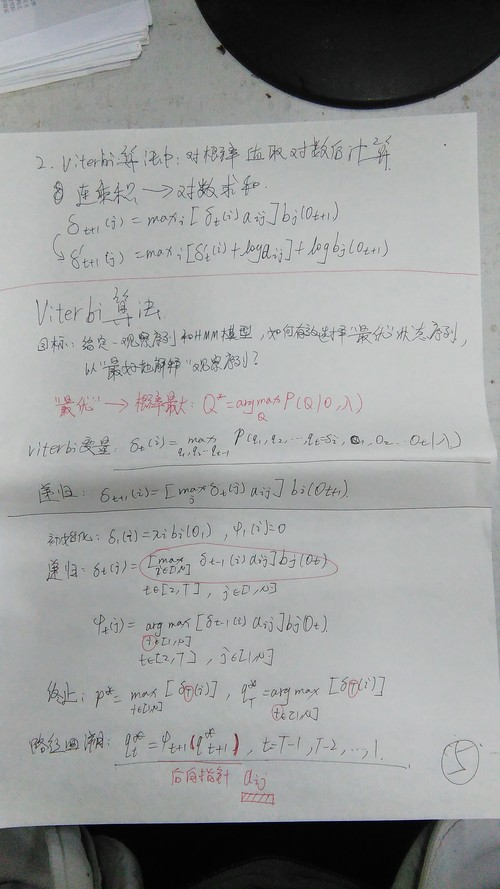 2. Viterbi算法中: 对概率值取对数后计算
① 连乘积 → 对数求和.
δt+1(j) = maxi [δt(i) aij] bj(Ot+1)
δ't+1(j) = maxi [δ't(i) + log aij] + log bj(Ot+1)
Viterbi算法
目标: 给定一观察序列和HMM模型, 如何有效选择"最优"状态序列,
以"最好地解释"观察序列?
"最优" → 概率最大: Q* = argmax P(Q|O,λ)
Q
viterbi变量: δt(i) = max P(q1,q2,...,qt=si, O1,O2...Ot|λ)
q1,q2...qt-1
递归: δt+1(i) = [max δt(j) aij] bi(Ot+1).
j
初始化: δ1(i) = πi bi(O1), ψ1(i)=0
递归: δt(j) = [max δt-1(i) aij] bj(Ot)
i∈[1,N]
t∈[2,T], j∈[1,N]
ψt(j) = argmax [δt-1(i) aij] bj(Ot).
i∈[1,N]
t∈[2,T], j∈[1,N]
终止: p* = max [δT(i)], q*T = argmax [δT(i)]
i∈[1,N] i∈[1,N]
路径回溯: q*t = ψt+1(q*t+1), t=T-1,T-2,...,1.
后向指针 aij
⑤